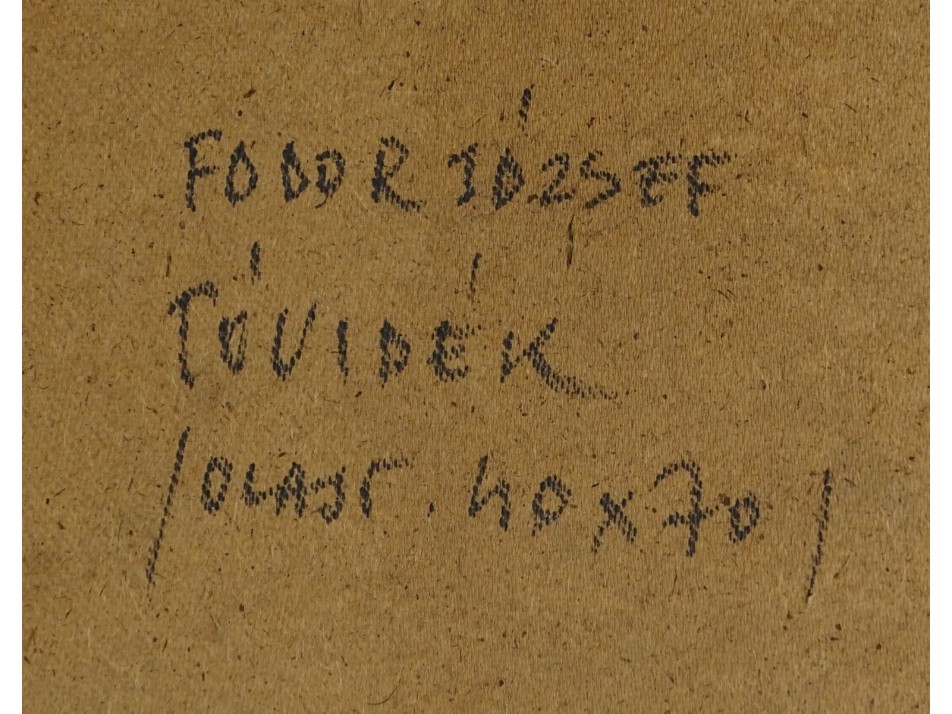 FODOR JÓZSEF
TÓVIDÉK
/OLAJF. 40X70/